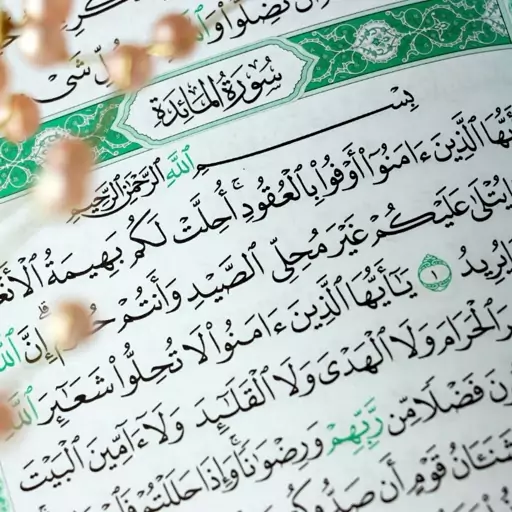 أَن تَضِلُّوا۟ وَٱللَّهُ
كُلِّ شَىْ
سُورَةُ المَائدَة
بِسْمِ ٱللَّهِ ٱلرَّحْمَٰنِ ٱلرَّحِيمِ
يُّهَا ٱلَّذِينَ ءَامَنُوٓا۟ أَوْفُوا۟ بِٱلْعُقُودِ ۚ أُحِلَّتْ لَكُم بَهِيمَةُ ٱلْأَنْعَ
ا يُتْلَىٰ عَلَيْكُمْ غَيْرَ مُحِلِّى ٱلصَّيْدِ وَأَنتُمْ حُ ۗ إِنَّ ٱللَّهَ
ا يُرِيدُ ١ يَٰٓأَيُّهَا ٱلَّذِينَ ءَامَنُوا۟ لَا تُحِلُّوا۟ شَعَٰٓئِرَ ٱللَّهِ
رَ ٱلْحَرَامَ وَلَا ٱلْهَدْىَ وَلَا ٱلْقَلَٰٓئِدَ وَلَآ ءَآمِّينَ ٱلْبَيْتَ
ونَ فَضْلًا مِّن رَّبِّهِمْ وَرِضْوَٰنًا ۚ وَإِذَا حَلَلْتُمْ فَٱصْ
شَنَـَٔانُ قَوْمٍ أَن صَدُّوكُمْ